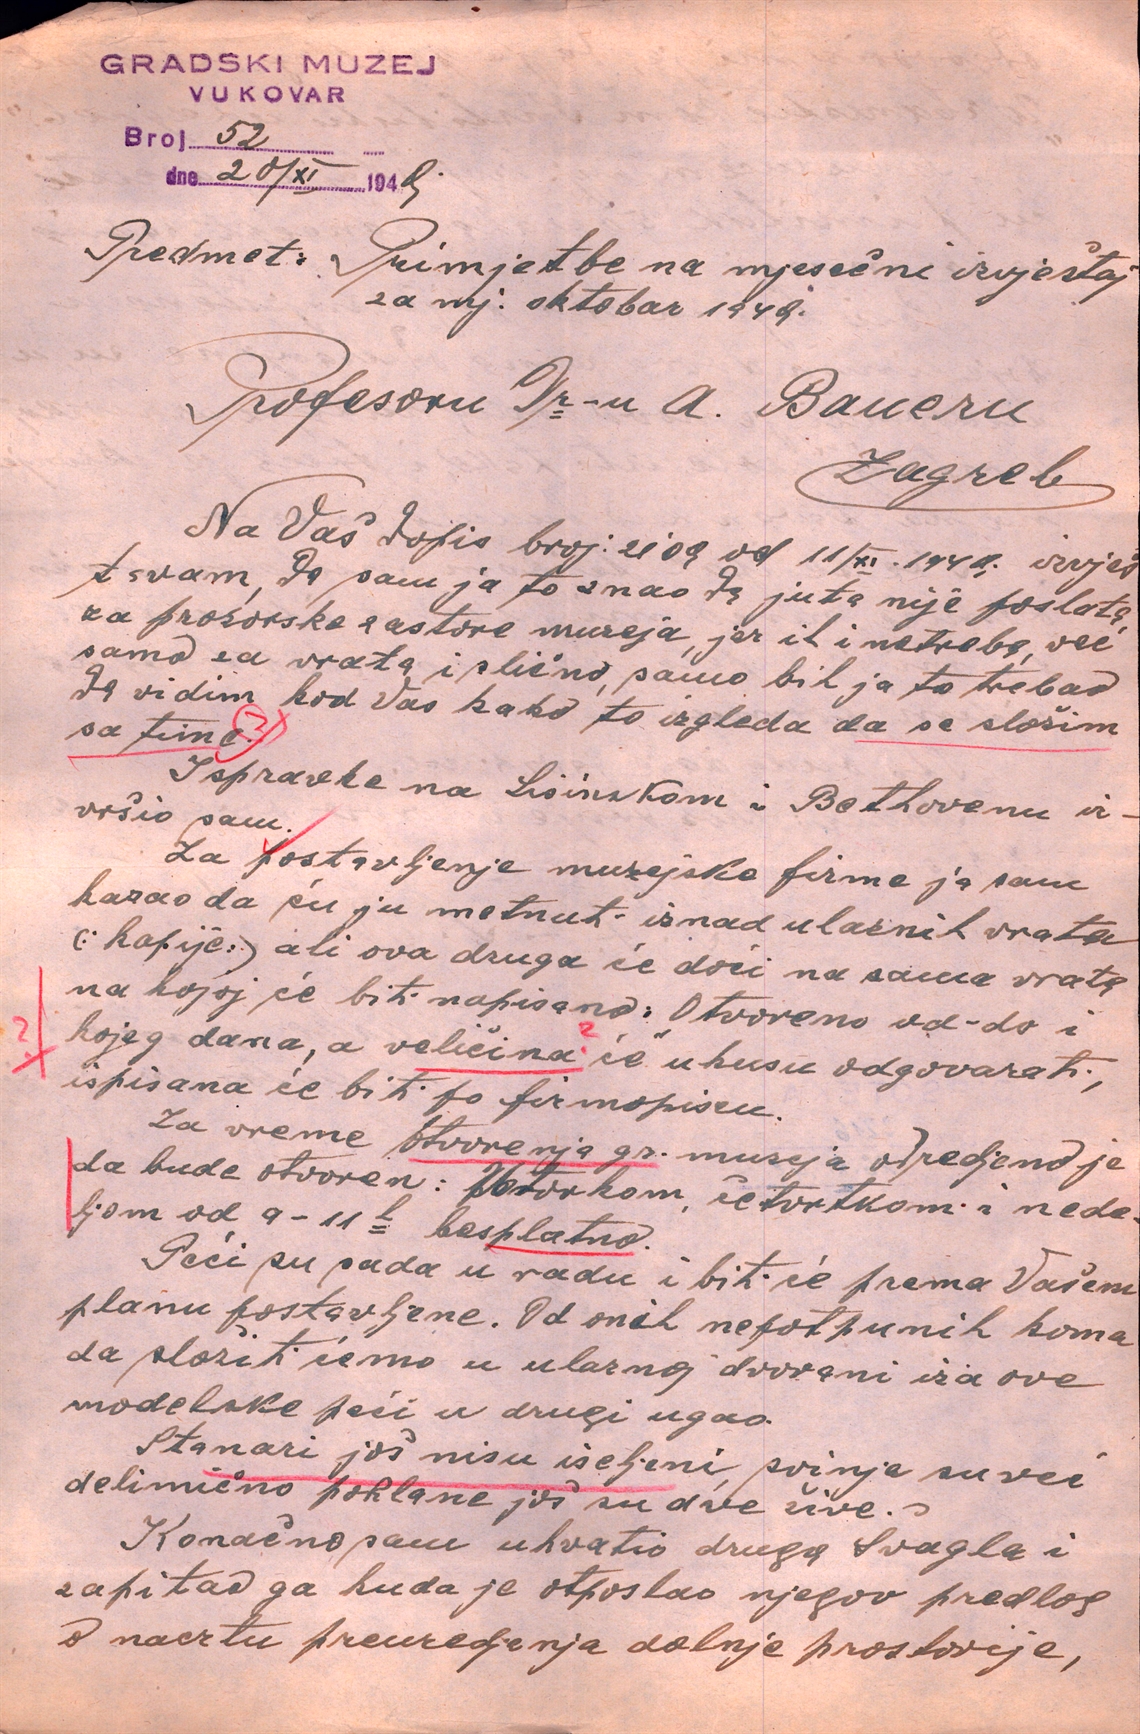 GRADSKI MUZEJ
VUKOVAR
Broj 52
dne 20/XI 1949.
Predmet: Primjetbe na mjesečni izvještaj
za mj: oktobar 1949.
Profesoru Dr-u A. Baueru
Zagreb
Na Vaš dopis broj: 2109 od 11/XI. 1949. izvješ
tavam, da sam ja to znao da juta nije poslata
za prozorske zastore muzeja, jer ih i netreba, već
samo za vrata i slično, samo bih ja to trebao
da vidim kod Vas kako to izgleda da se složim
sa time. ?
Ispravke na Lisinskom i Bethovenu iz-
vršio sam.
Za postavljenje muzejske firme ja sam
kazao da ću ju metnut iznad ulaznih vrata
(: kapije:) ali ova druga će doći na sama vrata
na kojoj će biti napisano: Otvoreno od-do i
? kojeg dana, a veličina ? će ukusu odgovarati,
ispisana će biti po firmopiscu.
Za vreme otvorenja gr. muzeja odredjeno je
da bude otvoren: Utorkom, četvrtkom i nede-
ljom od 9-11 h besplatno.
Peći su sada u radu i biti će prema Vašem
planu postavljene. Od onih nepotpunih koma
da složiti ćemo u ulaznoj dvorani iza ove
modelske peći u drugi ugao.
Stanari još nisu iseljeni, svinje su već
delimično poklane još su dve žive.
Konačno sam uhvatio druga Švagla i
zapitao ga kuda je otposlao njegov predlog
o nacrtu preuredjenja dolnje prostorije,